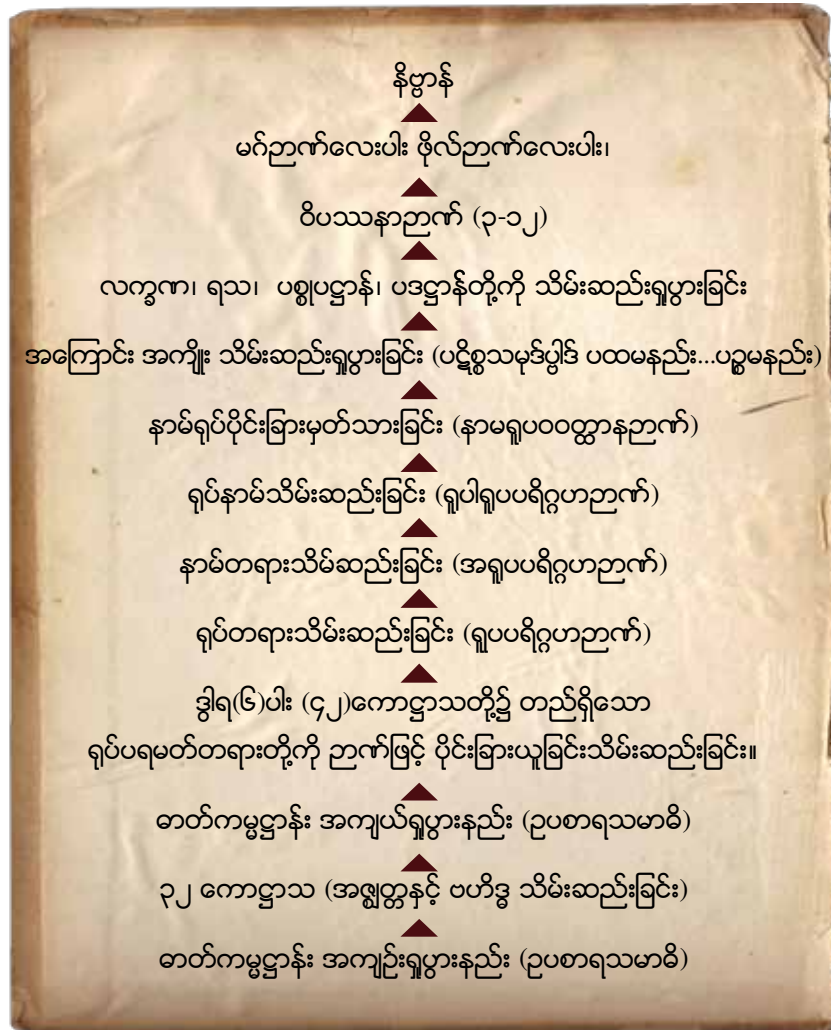 နိဗ္ဗာန်
မဂ်ဉာဏ်လေးပါး ဖိုလ်ဉာဏ်လေးပါး၊
ဝိပဿနာဉာဏ် (၃-၁၂)
လက္ခဏ၊ ရသ၊ ပစ္စုပဋ္ဌာန်၊ ပဒဋ္ဌာန်တို့ကို သိမ်းဆည်းရှုပွားခြင်း
အကြောင်း အကျိုး သိမ်းဆည်းရှုပွားခြင်း (ပဋိစ္စသမုဒ်ပ္ပါဒ် ပထမနည်း...ပဉ္စမနည်း)
နာမ်ရုပ်ပိုင်းခြားမှတ်သားခြင်း (နာမရူပဝဝတ္ထာနဉာဏ်)
ရုပ်နာမ်သိမ်းဆည်းခြင်း (ရူပါရူပပရိဂ္ဂဟဉာဏ်)
နာမ်တရားသိမ်ဆည်းခြင်း (အရူပပရိဂ္ဂဟဉာဏ်)
ရုပ်တရားသိမ်းဆည်းခြင်း (ရူပပရိဂ္ဂဟဉာဏ်)
ဒွါရ(၆)ပါး (၄၂)ကောဋ္ဌာသတို့၌ တည်ရှိသော
ရုပ်ပရမတ်တရားတို့ကို ဉာဏ်ဖြင့် ပိုင်းခြားယူခြင်းသိမ်းဆည်းခြင်း။
ဓာတ်ကမ္မဋ္ဌာန်း အကျယ်ရှုပွားနည်း (ဥပစာရသမာဓိ)
၃၂ ကောဋ္ဌာသ (အဇ္ဈတ္တနှင့် ဗဟိဒ္ဓ သိမ်းဆည်းခြင်း)
ဓာတ်ကမ္မဋ္ဌာန်း အကျဉ်းရှုပွားနည်း (ဥပစာရသမာဓိ)